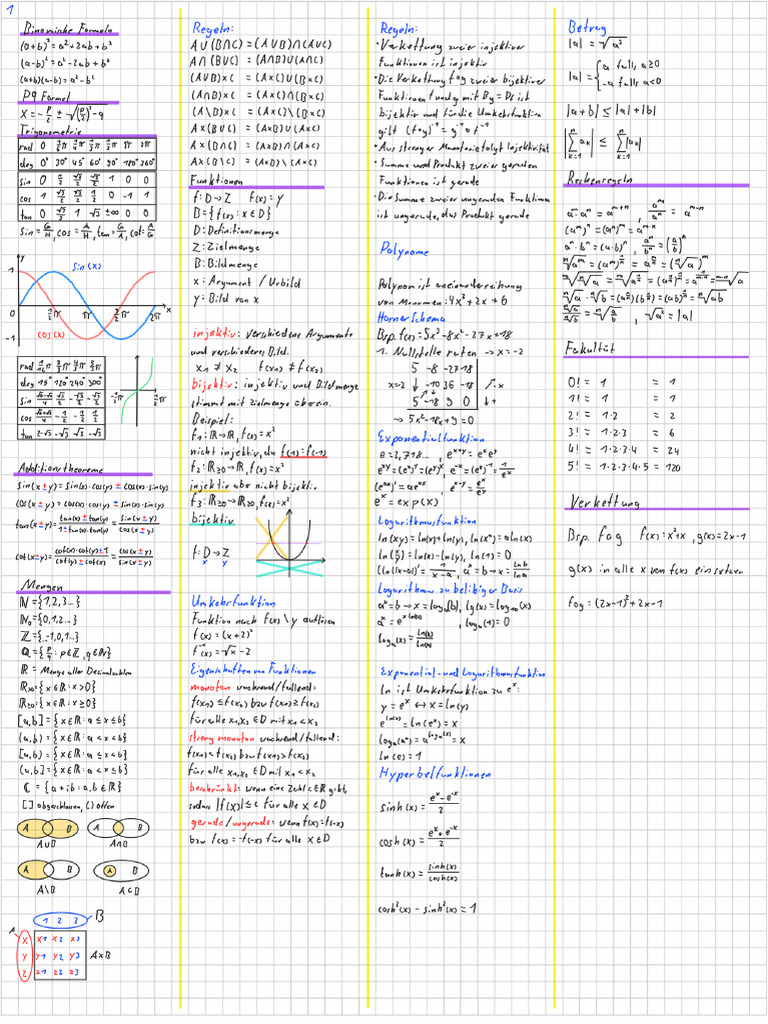 1
Binomische Formeln
(a+b)² = a² + 2ab + b²
(a-b)² = a² - 2ab + b²
(a+b)(a-b) = a² - b²
PQ Formel
x = -p/2 ± √((p/2)² - q)
Trigonometrie
rad 0 1/6π 1/4π 1/3π 1/2π π 2π
deg 0° 30° 45° 60° 90° 180° 360°
sin 0 1/2 √2/2 √3/2 1 0 0
cos 1 √3/2 √2/2 1/2 0 -1 1
tan 0 √3/3 1 √3 ±∞ 0 0
Sin = G/H, cos = A/H, tan = G/A, cot = A/G
y
sin(x)
1
0
-1
cos(x)
π/2 π 3/2π 2π x
deg 15° 120° 240° 300°
tan 2-√3 -√3 √3 -√3
Additionstheoreme
sin(x±y) = sin(x)·cos(y) ± cos(x)·sin(y)
cos(x±y) = cos(x)·cos(y) ∓ sin(x)·sin(y)
tan(x±y) = (tan(x)±tan(y))/(1∓tan(x)·tan(y)) = sin(x±y)/cos(x±y)
cot(x±y) = (cot(x)·cot(y)∓1)/(cot(y)±cot(x)) = cos(x±y)/sin(x±y)
Mengen
ℕ = {1,2,3...}
ℕ₀ = {0,1,2...}
ℤ = {...-1,0,1...}
ℚ = {p/q : p∈ℤ, q∈ℕ}
ℝ = Menge aller Dezimalzahlen
ℝ>0 = {x∈ℝ : x>0}
ℝ≥0 = {x∈ℝ : x≥0}
[a,b] = {x∈ℝ : a≤x≤b}
(a,b) = {x∈ℝ : a<x<b}
[a,b) = {x∈ℝ : a≤x<b}
(a,b] = {x∈ℝ : a<x≤b}
ℂ = {a+ib : a,b∈ℝ}
[] abgeschlossen, () offen
A B A B
A∪B A∩B
A B A B
A\B A⊂B
1 2 3 B
A
x x1 x2 x3
y y1 y2 y3 A×B
z z1 z2 z3
Regeln:
A∪(B∩C) = (A∪B)∩(A∪C)
A∩(B∪C) = (A∩B)∪(A∩C)
(A∪B)×C = (A×C)∪(B×C)
(A∩B)×C = (A×C)∩(B×C)
(A\B)×C = (A×C)\(B×C)
A×(B∪C) = (A×B)∪(A×C)
A×(B∩C) = (A×B)∩(A×C)
A×(B\C) = (A×B)\(A×C)
Funktionen
f: D→Z f(x)=y
B = {f(x) : x∈D}
D: Definitionsmenge
Z: Zielmenge
B: Bildmenge
x: Argument / Urbild
y: Bild von x
injektiv: verschiedene Argumente
und verschiedenes Bild.
x₁ ≠ x₂ f(x₁) ≠ f(x₂)
bijektiv: injektiv und Bildmenge
stimmt mit Zielmenge überein.
Beispiel:
f₁: ℝ→ℝ, f(x) = x²
nicht injektiv, da f(-1)=f(1)
f₂: ℝ≥0→ℝ, f(x) = x²
injektiv aber nicht bijektiv.
f₃: ℝ≥0→ℝ≥0, f(x) = x²
bijektiv
f: D→Z
x y
Umkehrfunktion
Funktion nach f(x)\y auflösen
f(x) = (x+2)²
f⁻¹(x) = √x - 2
Eigenschaften von Funktionen
monoton wachsend/fallend:
f(x₁)≤f(x₂) bzw f(x₁)≥f(x₂)
für alle x₁,x₂∈D mit x₁<x₂
streng monoton wachsend/fallend:
f(x₁)<f(x₂) bzw f(x₁)>f(x₂)
für alle x₁,x₂∈D mit x₁<x₂
beschränkt: wenn eine Zahl c∈ℝ gibt,
sodass |f(x)|≤c für alle x∈D
gerade/ungerade: wenn f(x)=f(-x)
bzw f(x)=-f(-x) für alle x∈D
Regeln:
·Verkettung zweier injektiver
Funktionen ist injektiv
·Die Verkettung f∘g zweier bijektiver
Funktionen f und g mit Bg=Df ist
bijektiv und für die Umkehrfunktion
gilt (f∘g)⁻¹ = g⁻¹∘f⁻¹
·Aus strenger Monotonie folgt Injektivität
·Summe und Produkt zweier geraden
Funktionen ist gerade
·Die Summe zweier ungeraden Funktionen
ist ungerade, das Produkt gerade
Polynome
Polynom ist aneinanderreihung
von Monomen: 4x²+2x+6
Horner Schema
Bsp. f(x) = 5x³-8x²-27x+18
1. Nullstelle raten → x=-2
5 -8 -27 18
x=-2 ↓ -10 36 -18 ↗·x
5 -18 9 0 ↓+
→ 5x²-18x+9=0
Exponentialfunktion
e = 2,718..., e^(x+y) = e^x e^y
e^(xy) = (e^x)^y = (e^y)^x, e^(-x) = (e^x)^(-1) = 1/e^x
(e^(ax))' = ae^(ax), e^(x-y) = e^x/e^y
e^x = exp(x)
Logarithmusfunktion
ln(xy) = ln(x)+ln(y), ln(x^a) = a ln(x)
ln(x/y) = ln(x)-ln(y), ln(1)=0
(ln(|x-a|))' = 1/(x-a), a^x=b → x = ln b/ln a
Logarithmus zu beliebiger Basis
a^x=b → x = logₐ(b), lg(x) = log₁₀(x)
a^x = e^(x ln(a)), logₐ(1)=0
logₐ(x) = ln(x)/ln(a)
Exponential- und Logarithmusfunktion
ln ist Umkehrfunktion zu e^x:
y = e^x ↔ x = ln(y)
e^(ln(x)) = ln(e^x) = x
logₐ(a^x) = a^(logₐ(x)) = x
ln(e) = 1
Hyperbelfunktionen
sinh(x) = (e^x - e^(-x))/2
cosh(x) = (e^x + e^(-x))/2
tanh(x) = sinh(x)/cosh(x)
cosh²(x) - sinh²(x) = 1
Betrag
|a| = √a²
|a| = { a falls, a≥0
-a falls a<0
|a+b| ≤ |a|+|b|
|Σ(k=1..n) aₖ| ≤ Σ(k=1..n) |aₖ|
Rechenregeln
a^m·a^n = a^(m+n), a^m/a^n = a^(m-n)
(a^m)^n = (a^n)^m = a^(m·n)
a^n·b^n = (a·b)^n, a^n/b^n = (a/b)^n
Fakultät
0! = 1 = 1
1! = 1 = 1
2! = 1·2 = 2
3! = 1·2·3 = 6
4! = 1·2·3·4 = 24
5! = 1·2·3·4·5 = 120
Verkettung
Bsp. f∘g f(x)=x²+x, g(x)=2x-1
g(x) in alle x von f(x) einsetzen
f∘g = (2x-1)²+2x-1